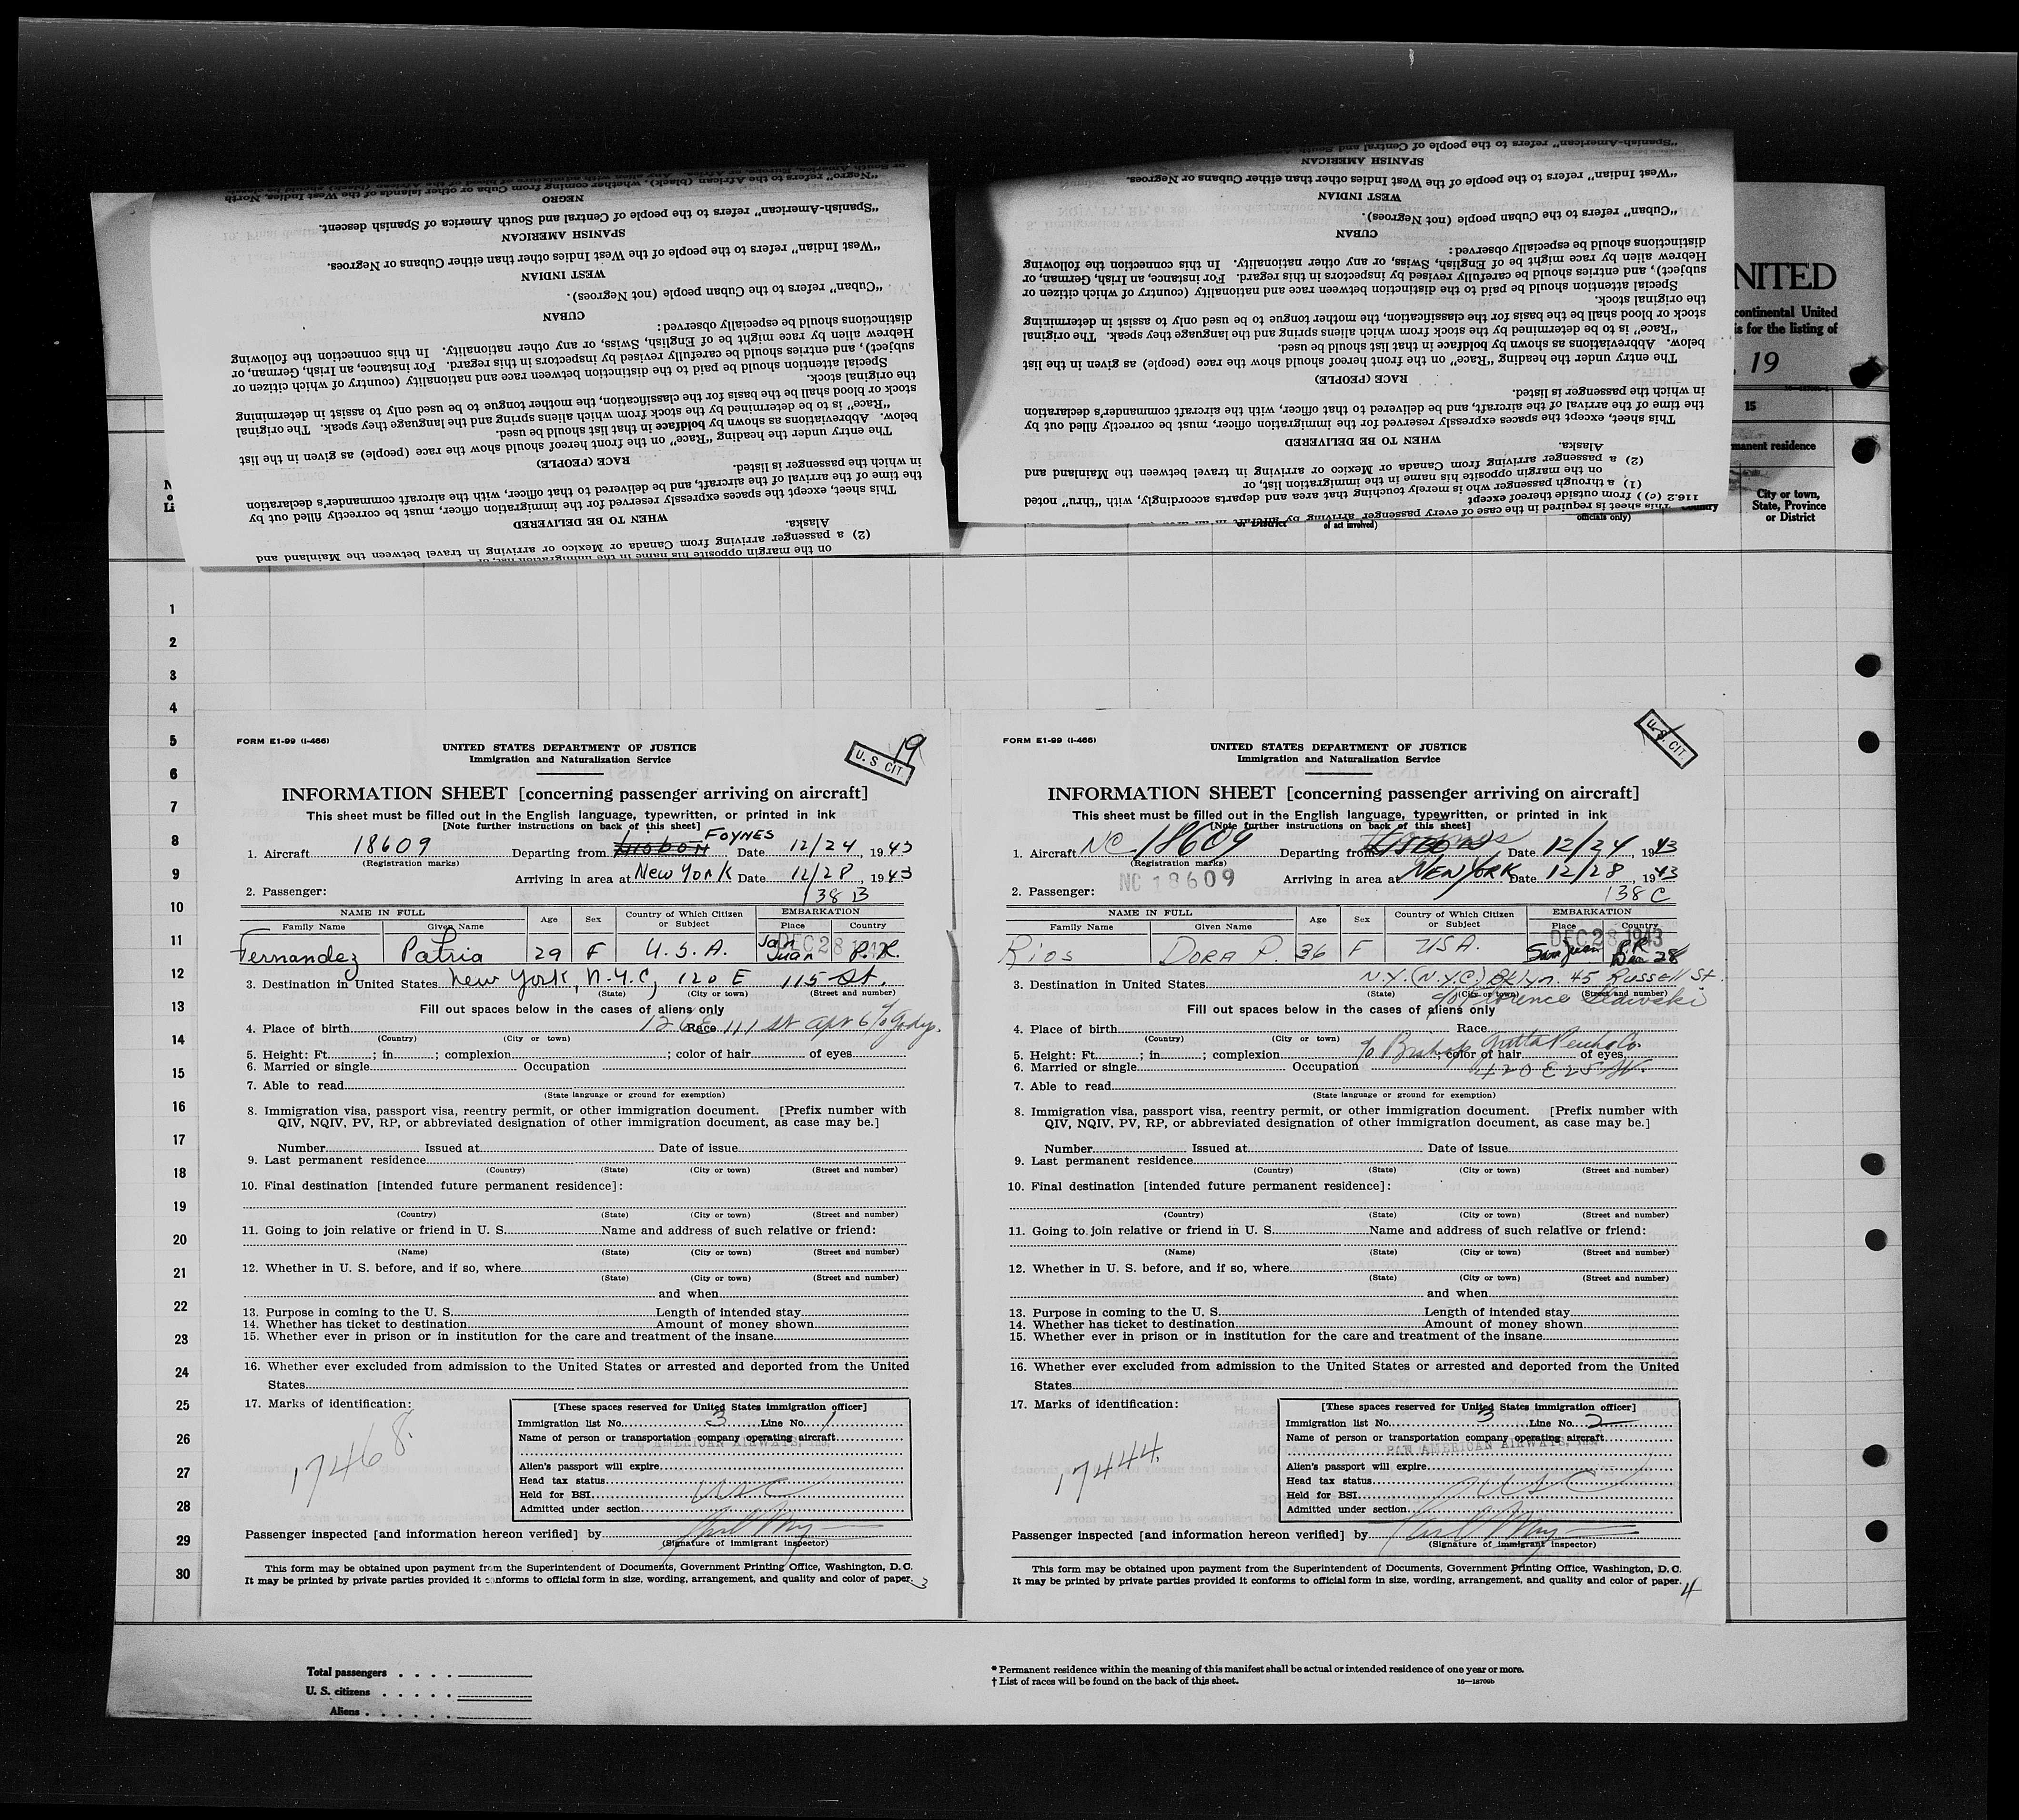 "Negro" refers to the African (black), whether coming from Cuba or other islands of the West Indies, North
NEGRO
"Spanish-American" refers to the people of Central and South America of Spanish descent.
SPANISH AMERICAN
"West Indian" refers to the people of the West Indies other than either Cubans or Negroes.
WEST INDIAN
"Cuban" refers to the people of Cuban people (not Negroes).
CUBAN
distinctions should be especially observed:
Hebrew alien by race might be of English, Swiss, or any other nationality. In this connection the following
subject), and entries should be carefully revised by inspectors in this regard. For instance, an Irish, German, or
Special attention should be paid to the distinction between race and nationality (country of which citizen or
the original stock.
stock or blood shall be the basis for the classification, the mother tongue to be used only to assist in determining
"Race" is to be determined by the stock from which aliens spring and the language they speak. The original
below. Abbreviations as shown by boldface in that list should be used.
The entry under the heading "Race" on the front hereof should show the race (people) as given in the list
RACE (PEOPLE)
in which the passenger is listed.
the time of the arrival of the aircraft, and be delivered to that officer, with the aircraft commander's declaration
This sheet, except the spaces expressly reserved for the immigration officer, must be correctly filled out by
WHEN TO BE DELIVERED
Alaska.
(2) a passenger arriving from Canada or Mexico or arriving in travel between the Mainland and
on the margin opposite his name in the immigration list, or
"Spanish-American" refers to the people of Central and South
SPANISH AMERICAN
"West Indian" refers to the people of the West Indies other than either Cubans or Negroes.
WEST INDIAN
"Cuban" refers to the Cuban people (not Negroes).
CUBAN
distinctions should be especially observed:
Hebrew alien by race might be of English, Swiss, or any other nationality. In this connection the following
subject), and entries should be carefully revised by inspectors in this regard. For instance, an Irish, German, or
Special attention should be paid to the distinction between race and nationality (country of which citizen or
the original stock.
stock or blood shall be the basis for the classification, the mother tongue to be used only to assist in determining
"Race" is to be determined by the stock from which aliens spring and the language they speak. The original
below. Abbreviations as shown by boldface in that list should be used.
The entry under the heading "Race" on the front hereof should show the race (people) as given in the list
RACE (PEOPLE)
in which the passenger is listed.
the time of the arrival of the aircraft, and be delivered to that officer, with the aircraft commander's declaration
This sheet, except the spaces expressly reserved for the immigration officer, must be correctly filled out by
WHEN TO BE DELIVERED
Alaska.
(2) a passenger arriving from Canada or Mexico or arriving in travel between the Mainland and
on the margin opposite his name in the immigration list, or
(1) a through passenger who is merely touching that area and departs accordingly, with "thru" noted
116.2 (c)) from outside thereof except
This sheet is required in the case of every passenger arriving by aircraft in
NITED
continental United
is for the listing of
19
15
manent residence
City or town,
State, Province
or District
Country
officials only)
of act involved)
or District
1
2
3
4
5
6
7
8
9
10
11
12
13
14
15
16
17
18
19
20
21
22
23
24
25
26
27
28
29
30
FORM E1-99 (I-466)
19
U. S CIT.
UNITED STATES DEPARTMENT OF JUSTICE
Immigration and Naturalization Service
INFORMATION SHEET [concerning passenger arriving on aircraft]
This sheet must be filled out in the English language, typewritten, or printed in ink
[Note further instructions on back of this sheet]
1. Aircraft 18609 Departing from Lisbon FOYNES Date 12/24, 1943
(Registration marks)
Arriving in area at New York Date 12/28, 1943
2. Passenger: 138 B
NAME IN FULL Age Sex Country of Which Citizen or Subject EMBARKATION
Family Name Given Name Place Country
DEC 28 1943
Fernandez Patria 29 F U.S.A. San Juan P.R.
3. Destination in United States New York, N.Y.C, 120 E 115 St.
(State) (City or town) (Street and number)
Fill out spaces below in the cases of aliens only
4. Place of birth Race 126 E 111 St Apt 6
(Country) (City or town)
5. Height: Ft. ; in ; complexion ; color of hair of eyes
6. Married or single Occupation
7. Able to read
(State language or ground for exemption)
8. Immigration visa, passport visa, reentry permit, or other immigration document. [Prefix number with
QIV, NQIV, PV, RP, or abbreviated designation of other immigration document, as case may be.]
Number Issued at Date of issue
9. Last permanent residence
(Country) (State) (City or town) (Street and number)
10. Final destination [intended future permanent residence]:
(Country) (State) (City or town) (Street and number)
11. Going to join relative or friend in U. S. Name and address of such relative or friend:
(Name) (State) (City or town) (Street and number)
12. Whether in U. S. before, and if so, where
(State) (City or town) (Street and number)
and when
13. Purpose in coming to the U. S. Length of intended stay
14. Whether has ticket to destination Amount of money shown
15. Whether ever in prison or in institution for the care and treatment of the insane
16. Whether ever excluded from admission to the United States or arrested and deported from the United
States
17. Marks of identification:
17468.
[These spaces reserved for United States immigration officer]
Immigration list No. 3 Line No. 1
Name of person or transportation company operating aircraft
PAN AMERICAN AIRWAYS, INC.
Alien's passport will expire
Head tax status
Held for BSI USC
Admitted under section
Passenger inspected [and information hereon verified] by
(Signature of immigrant inspector)
This form may be obtained upon payment from the Superintendent of Documents, Government Printing Office, Washington, D. C.
It may be printed by private parties provided it conforms to official form in size, wording, arrangement, and quality and color of paper.
3
FORM E1-99 (I-466)
U. S. CIT.
UNITED STATES DEPARTMENT OF JUSTICE
Immigration and Naturalization Service
INFORMATION SHEET [concerning passenger arriving on aircraft]
This sheet must be filled out in the English language, typewritten, or printed in ink
[Note further instructions on back of this sheet]
1. Aircraft NC 18609 Departing from Lisbon Date 12/24, 1943
(Registration marks)
NC 18609
Arriving in area at New York Date 12/28 1943
2. Passenger: 138 C
NAME IN FULL Age Sex Country of Which Citizen or Subject EMBARKATION
Family Name Given Name Place Country
DEC 28 1943
Rios DORA P. 36 F USA. San Juan P.R. Dec 28
3. Destination in United States N.Y. (N.Y.C) Bklyn. 45 Russell St.
(State) (City or town) (Street and number)
c/o Florence
Fill out spaces below in the cases of aliens only
4. Place of birth Race
(Country) (City or town)
5. Height: Ft. ; in ; complexion ; color of hair of eyes
c/o Bishop Gutta Percha Co.
6. Married or single Occupation 420 E 25 St.
7. Able to read
(State language or ground for exemption)
8. Immigration visa, passport visa, reentry permit, or other immigration document. [Prefix number with
QIV, NQIV, PV, RP, or abbreviated designation of other immigration document, as case may be.]
Number Issued at Date of issue
9. Last permanent residence
(Country) (State) (City or town) (Street and number)
10. Final destination [intended future permanent residence]:
(Country) (State) (City or town) (Street and number)
11. Going to join relative or friend in U. S. Name and address of such relative or friend:
(Name) (State) (City or town) (Street and number)
12. Whether in U. S. before, and if so, where
(State) (City or town) (Street and number)
and when
13. Purpose in coming to the U. S. Length of intended stay
14. Whether has ticket to destination Amount of money shown
15. Whether ever in prison or in institution for the care and treatment of the insane
16. Whether ever excluded from admission to the United States or arrested and deported from the United
States
17. Marks of identification:
17444.
[These spaces reserved for United States immigration officer]
Immigration list No. 3 Line No. 2
Name of person or transportation company operating aircraft
PAN AMERICAN AIRWAYS, INC.
Alien's passport will expire
Head tax status USC
Held for BSI
Admitted under section
Passenger inspected [and information hereon verified] by
(Signature of immigrant inspector)
This form may be obtained upon payment from the Superintendent of Documents, Government Printing Office, Washington, D. C.
It may be printed by private parties provided it conforms to official form in size, wording, arrangement, and quality and color of paper.
4
Total passengers
U. S. citizens
Aliens
* Permanent residence within the meaning of this manifest shall be actual or intended residence of one year or more.
† List of races will be found on the back of this sheet.
16—18709b